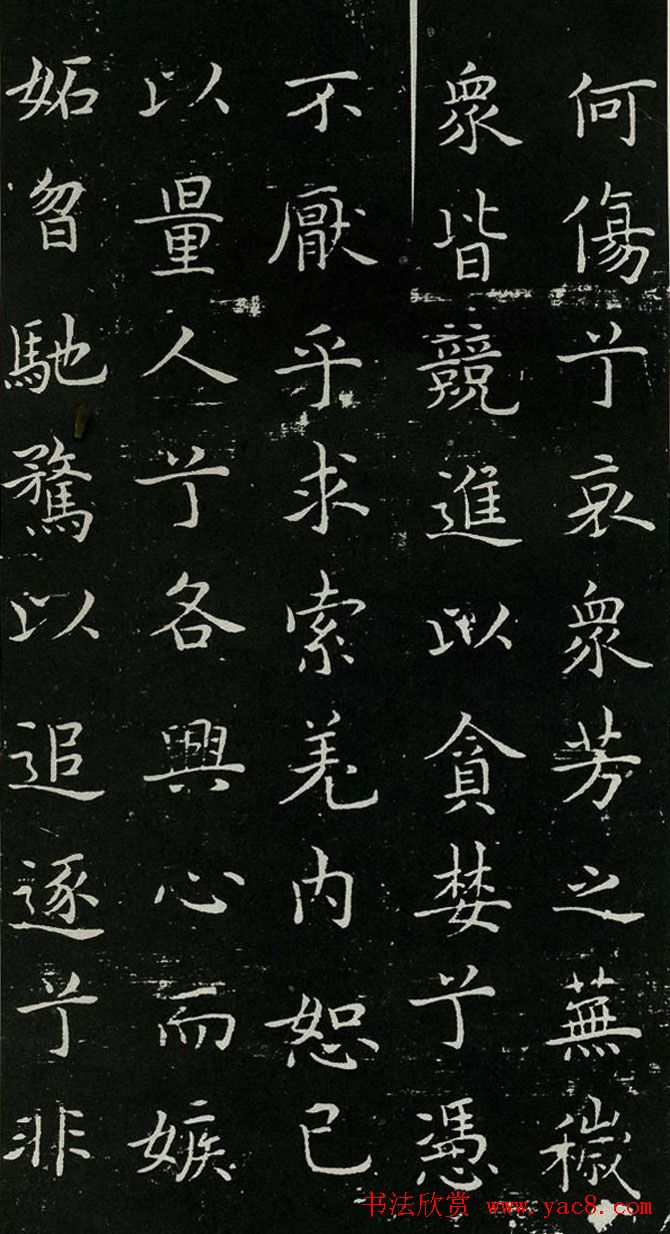 何傷兮哀衆芳之蕪穢
衆皆競進以貪婪兮憑
不厭乎求索羌内恕已
以量人兮各興心而嫉
妬曶馳騖以追逐兮非
书法欣赏 www.yac8.com